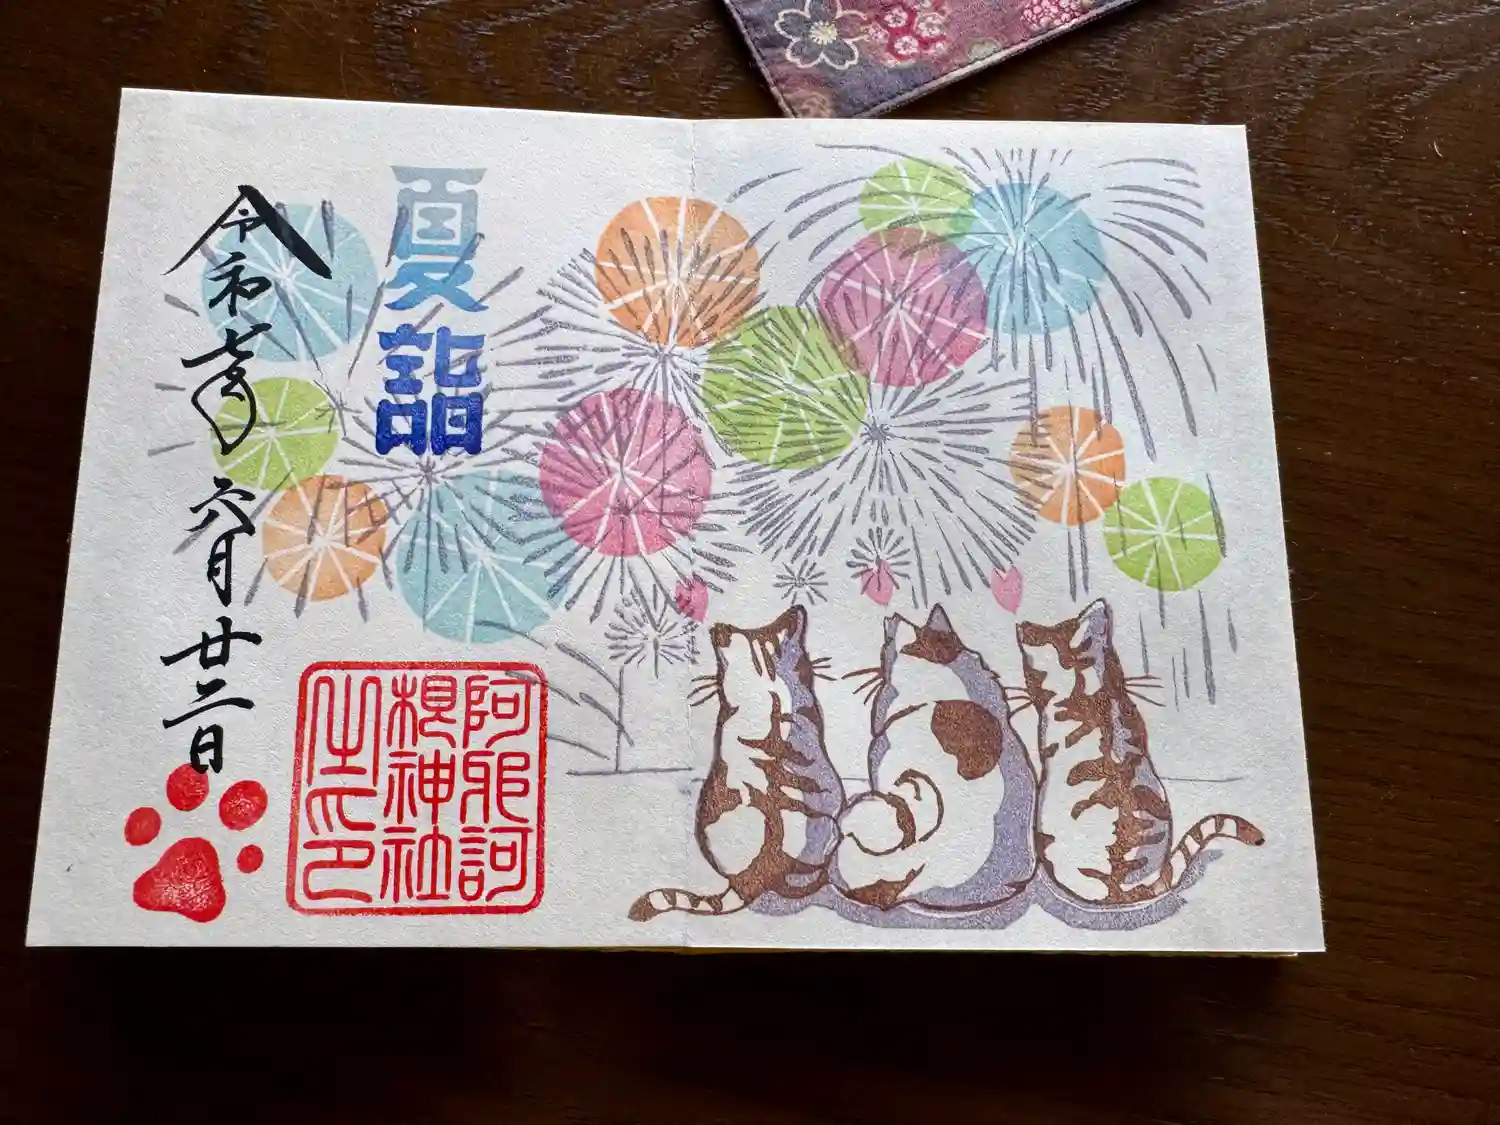 夏詣
令和七年六月廿二日
阿邪訶
根神社
之印